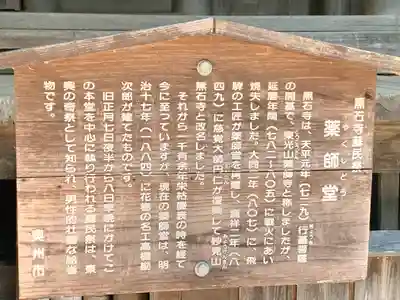 黒石寺蘇民祭
薬師堂
やくしどう
黒石寺は、天平元年(七二九)行基菩薩
の開基で、東光山薬師寺と称しましたが、
延暦年間(七八二〜八〇五)に戦火にあい
焼失しました。大同二年(八〇七)に、飛
騨の工匠が薬師堂を再建し、嘉祥二年(八
四九)に慈覚大師円仁が復興して妙見山
黒石寺と改名しました。
それから一千有余年栄枯盛衰の時を経て
今に至っています。現在の薬師堂は、明
治十七年(一八八四)に花巻の名工高橋勘
次郎が建てたものです。
旧正月七日夜半から八日早暁にかけてこ
の本堂を中心に繰り行われる蘇民祭は、東
奥の奇祭として知られ、男性的な勇壮な祭
物です。
奥州市